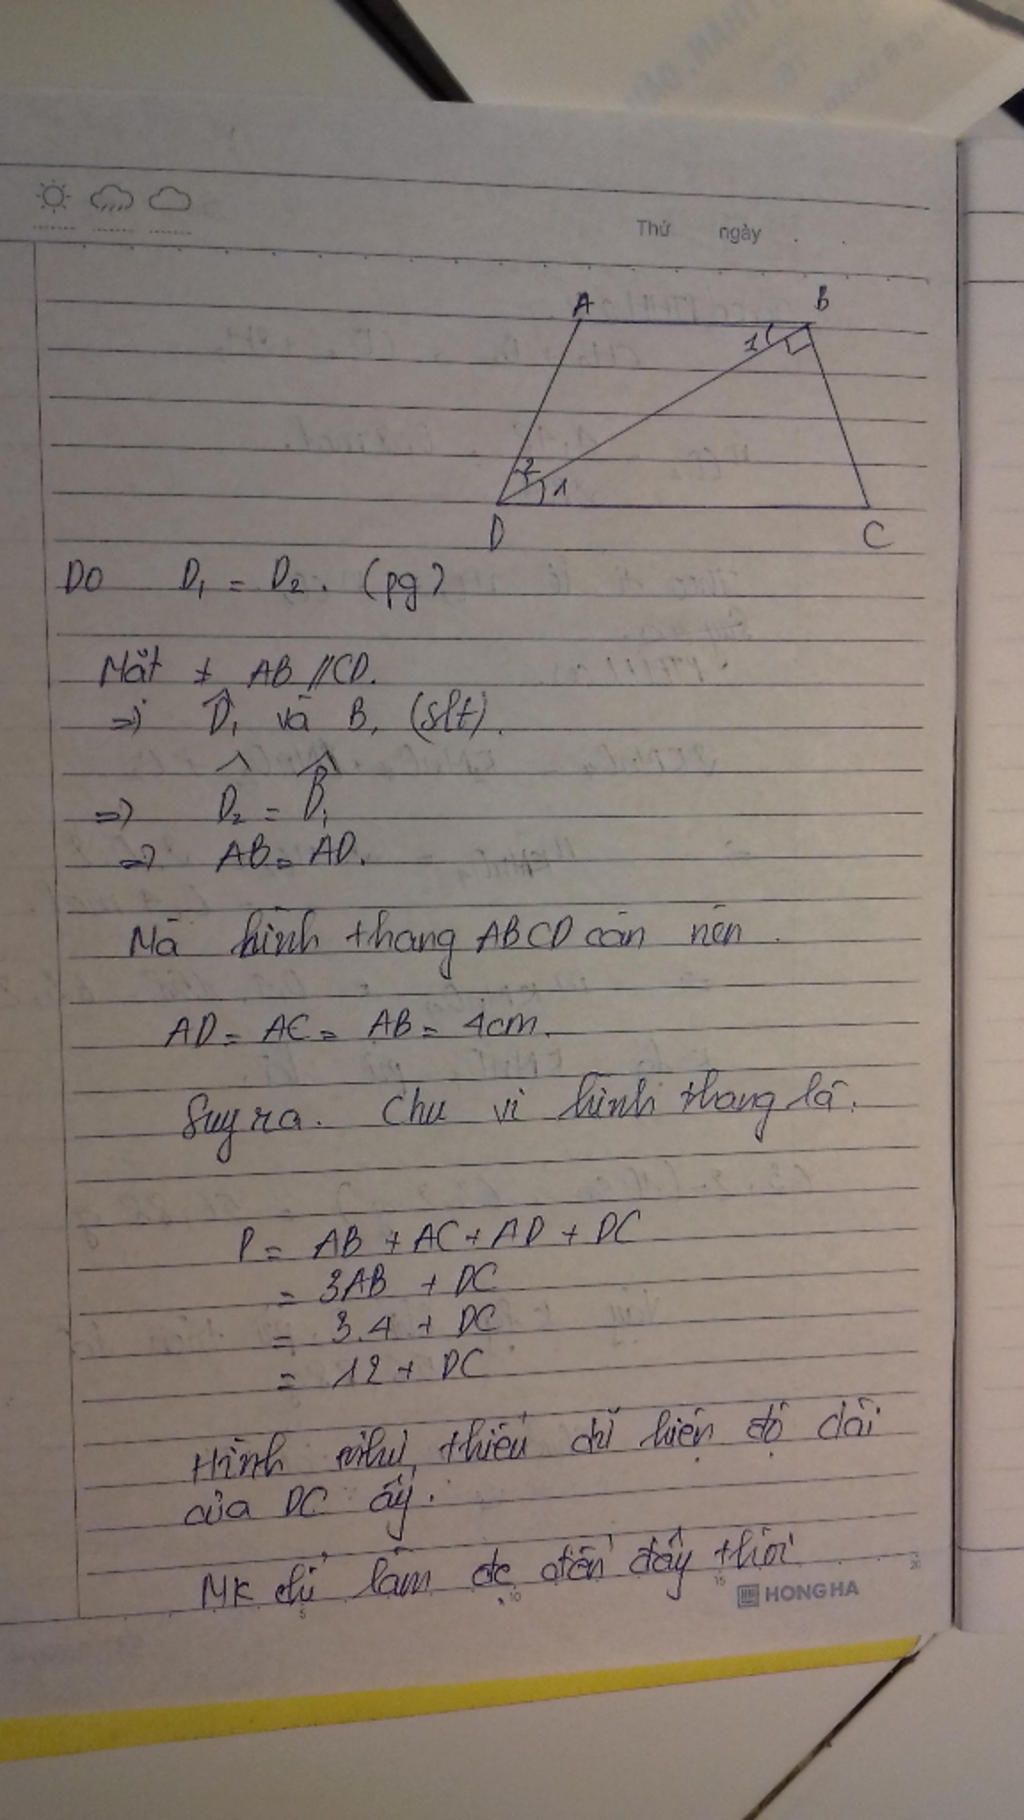 Thứ ngày
A B
1
2 1
D C
Do D₁ = D₂. (pg)
Măt + AB // CD.
=> D̂₁ và B₁ (slt).
=> D̂₂ = B̂₁
=> AB = AD.
Mà hình thang ABCD cân nên
AD = AC = AB = 4cm.
Suy ra. Chu vi hình thang là.
P = AB + AC + AD + DC
= 3AB + DC
= 3.4 + DC
= 12 + DC
Hình như thiếu dữ kiện độ dài
của DC ấy.
Mk chỉ làm đc đến đấy thôi
5 10 15 20
HONG HA